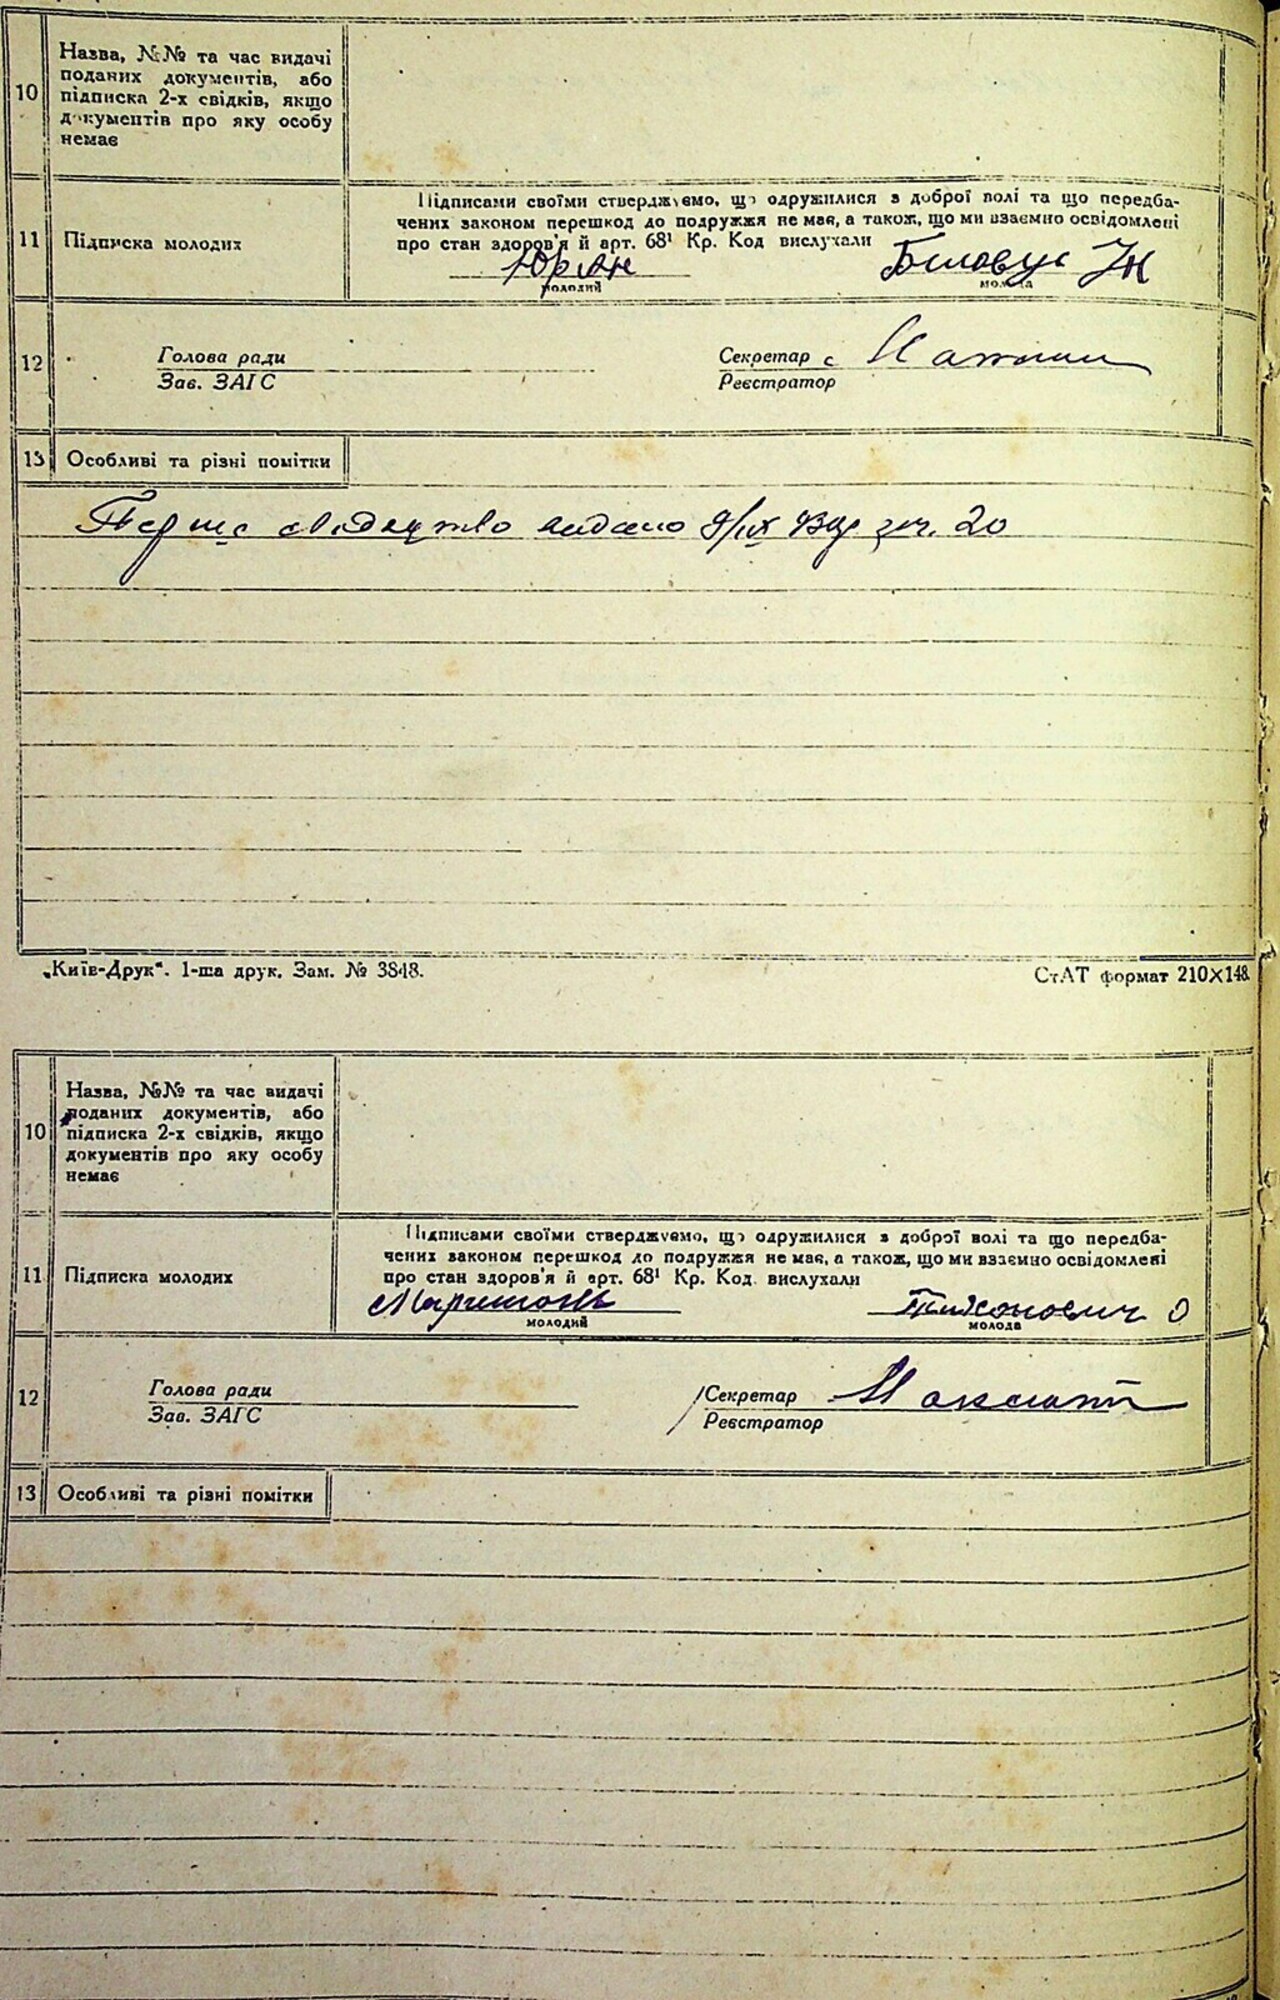 10
Назва, №№ та час видачі
поданих документів, або
підписка 2-х свідків, якщо
документів про яку особу
немає
11
Підписка молодих
Підписами своїми стверджуємо, що одружилися з доброї волі та що передба-
чених законом перешкод до подружжя не має, а також, що ми взаємно освідомлені
про стан здоров'я й арт. 68¹ Кр. Код вислухали
молодий
Біловус
молода
12
Голова ради
Зав. ЗАГС
Секретар
Реєстратор
13 Особливі та різні помітки
Перше свідоцтво видано 9/IX 20
„Київ-Друк“. 1-ша друк. Зам. № 3848.
СтАТ формат 210×148.
10
Назва, №№ та час видачі
поданих документів, або
підписка 2-х свідків, якщо
документів про яку особу
немає
11
Підписка молодих
Підписами своїми стверджуємо, що одружилися з доброї волі та що передба-
чених законом перешкод до подружжя не має, а також, що ми взаємно освідомлені
про стан здоров'я й арт. 68¹ Кр. Код. вислухали
Тихонович О
молодий
молода
12
Голова ради
Зав. ЗАГС
Секретар
Реєстратор
13 Особливі та різні помітки